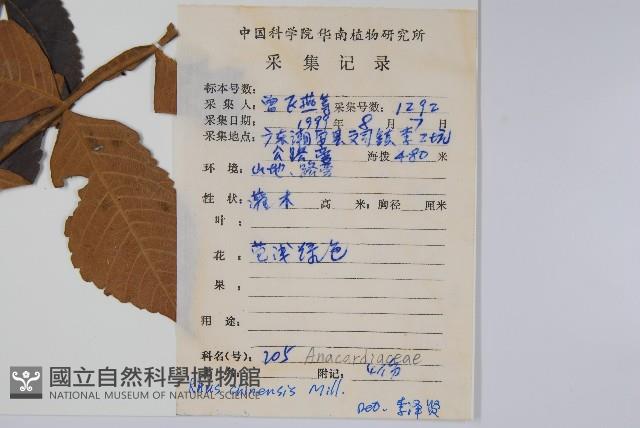 中国科学院华南植物研究所
采集记录
标本号数：
采集人：曾飞燕等 采集号数：1292
采集日期：1999年8月7日
采集地点：广东潮安县文祠镇李工坑
公路旁 海拔480米
环境：山地、路旁
性状：灌木 高 米；胸径 厘米
叶：
花：花浅绿色
果：
用途：
科名(号)：205 Anacardiaceae
附记：4份
Rhus chinensis Mill.
Det. 李泽贤
國立自然科學博物館
NATIONAL MUSEUM OF NATURAL SCIENCE